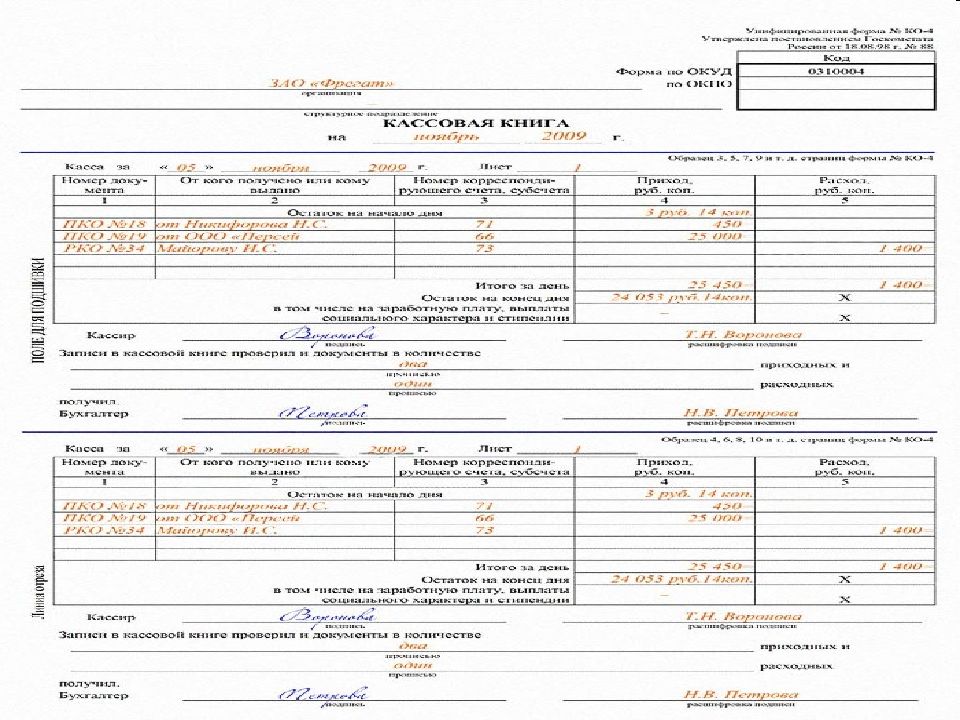 Унифицированная форма № КО-4
Утверждена постановлением Госкомстата
России от 18.08.98 г. № 88
Код
Форма по ОКУД 0310004
ЗАО «Фрегат» по ОКПО
организация
структурное подразделение
КАССОВАЯ КНИГА
на ноябрь 2009 г.
Образец 3, 5, 7, 9 и т. д. страниц формы № КО-4
Касса за « 05 » ноября 2009 г. Лист 1
Номер доку- От кого получено или кому Номер корреспонди- Приход, Расход,
мента выдано рующего счета, субсчета руб. коп. руб. коп.
1 2 3 4 5
Остаток на начало дня 3 руб. 14 коп.
ПКО №18 от Никифорова Н.С. 71 450–
ПКО №19 от ООО «Персей 66 25 000–
РКО №34 Майорову И.С. 73 1 400–
Итого за день 25 450– 1 400–
Остаток на конец дня 24 053 руб.14коп. X
в том числе на заработную плату, выплаты –
социального характера и стипендии X
Кассир Воронова Т.Н. Воронова
подпись расшифровка подписи
Записи в кассовой книге проверил и документы в количестве
два приходных и
прописью
один расходных
прописью
получил.
Бухгалтер Петрова Н.В. Петрова
подпись расшифровка подписи
ПОЛЕ ДЛЯ ПОДШИВКИ
Образец 4, 6, 8, 10 и т. д. страниц формы № КО-4
Касса за « 05 » ноября 2009 г. Лист 1
Номер доку- От кого получено или кому Номер корреспонди- Приход, Расход,
мента выдано рующего счета, субсчета руб. коп. руб. коп.
1 2 3 4 5
Остаток на начало дня 3 руб. 14 коп.
ПКО №18 от Никифорова Н.С. 71 450–
ПКО №19 от ООО «Персей 66 25 000–
РКО №34 Майорову И.С. 73 1 400–
Итого за день 25 450– 1 400–
Остаток на конец дня 24 053 руб.14коп. X
в том числе на заработную плату, выплаты –
социального характера и стипендии X
Кассир Воронова Т.Н. Воронова
подпись расшифровка подписи
Записи в кассовой книге проверил и документы в количестве
два приходных и
прописью
один расходных
прописью
получил.
Бухгалтер Петрова Н.В. Петрова
подпись расшифровка подписи
Линия отреза